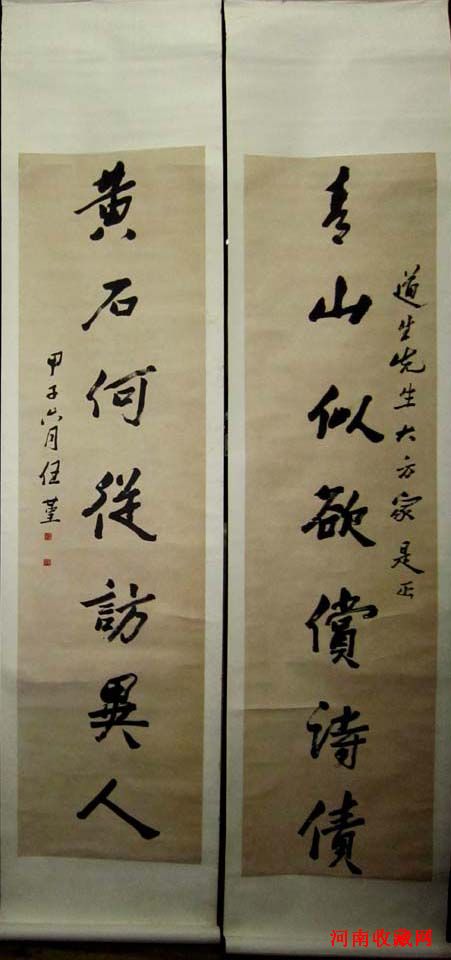 道生先生大方家是正
青山似欲償詩債
黃石何從訪異人
甲子六月任堇
河南收藏网